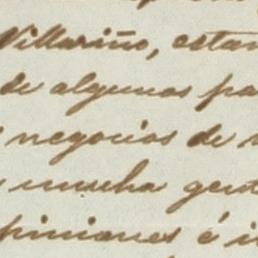 Villariño, estan
de algunos pa
negocios de
mucha gent
piniones é i